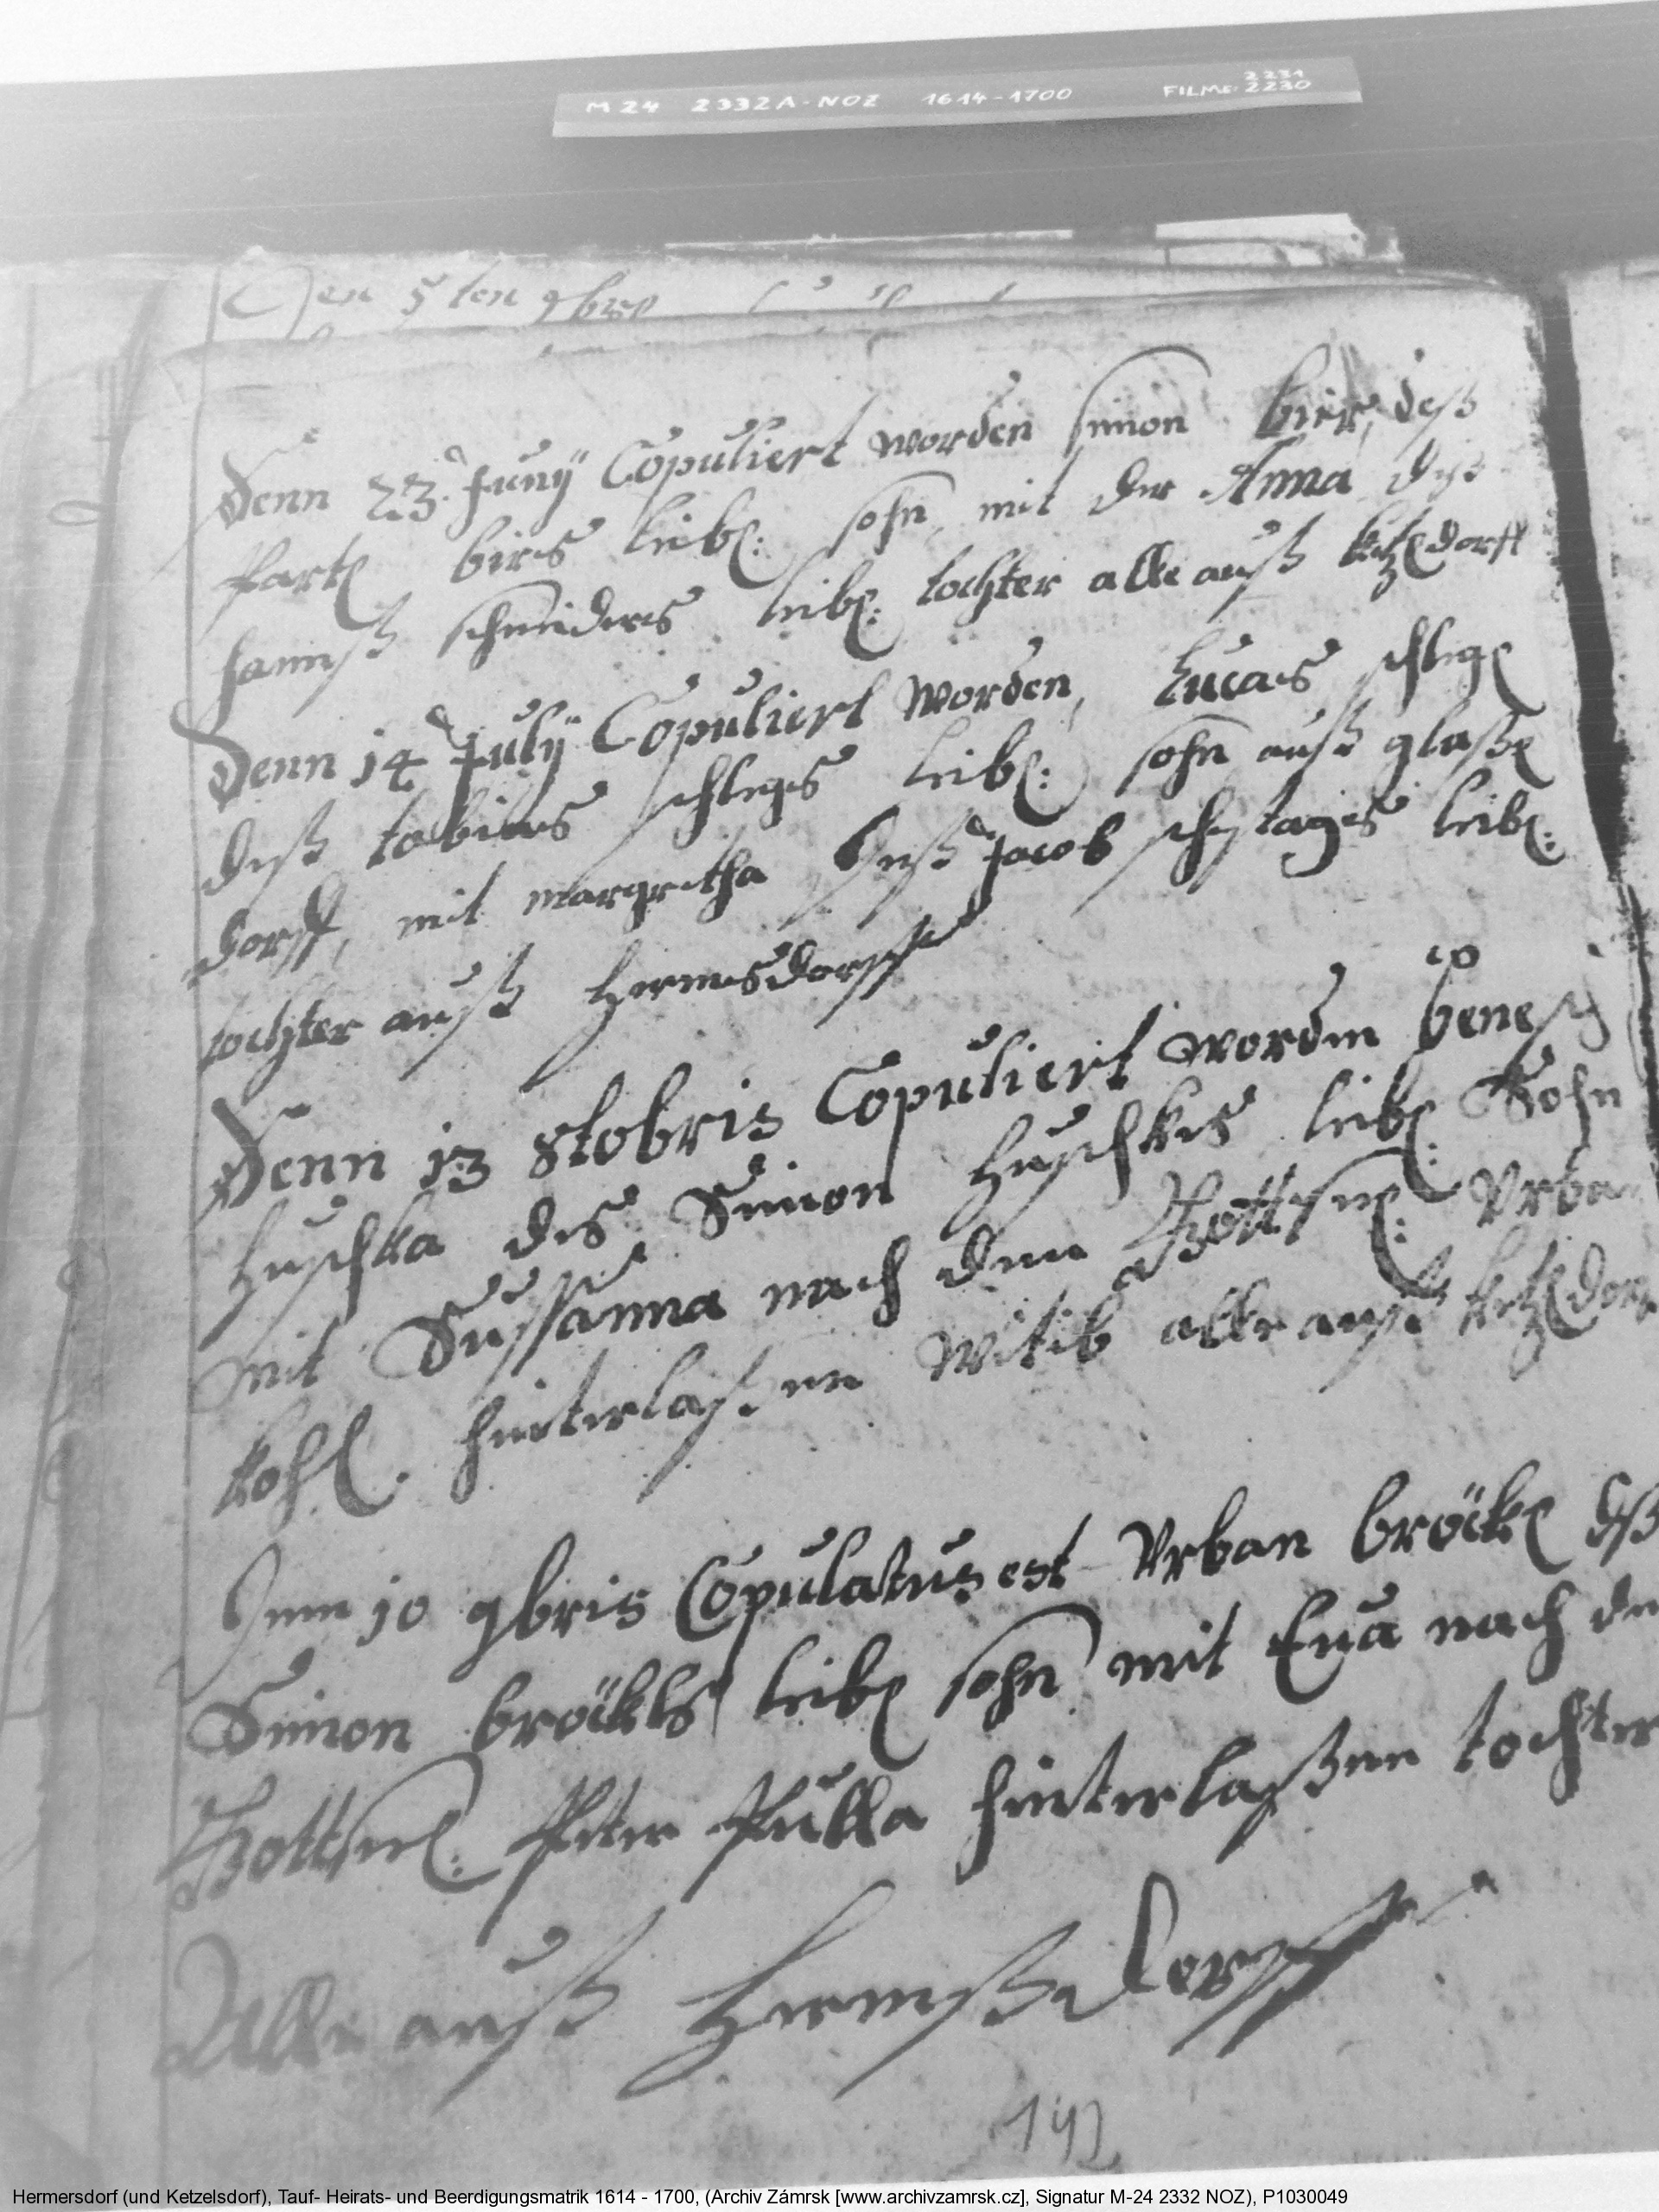 M 24 2332A-NOZ 1614-1700 FILME: 2231 2230
Den 5 ten 9bris
Denn 23 Juny Copuliert worden Simon bier, deß
birs leibl: sohn, mit der Anna deß
hannß schneiders leibl: tochter alle auß ketzldorff
Denn 14 July Copuliert worden, Lucas schlegl
deß tobias schlegls leibl: sohn auß glaßl
dorff, mit margretha deß Jacob leibl:
tochter auß Hermesdorff
Denn 13 8tobris Copuliert worden benesch
Huschka des Simon Huschkes leibl: Sohn
mit Sussanna nach dem Gottseel: Urban
kohl. hinterlaßnen Witib alle auß ketzldorf
Denn 10 9bris Copulatus est Urban bröckl deß
Simon bröckls leibl sohn mit Eva nach dem
Gottseel: Peter Pulka hinterlaßnen tochter
Alle auß Hermßdorff
192
Hermersdorf (und Ketzelsdorf), Tauf- Heirats- und Beerdigungsmatrik 1614 - 1700, (Archiv Zámrsk [www.archivzamrsk.cz], Signatur M-24 2332 NOZ), P1030049